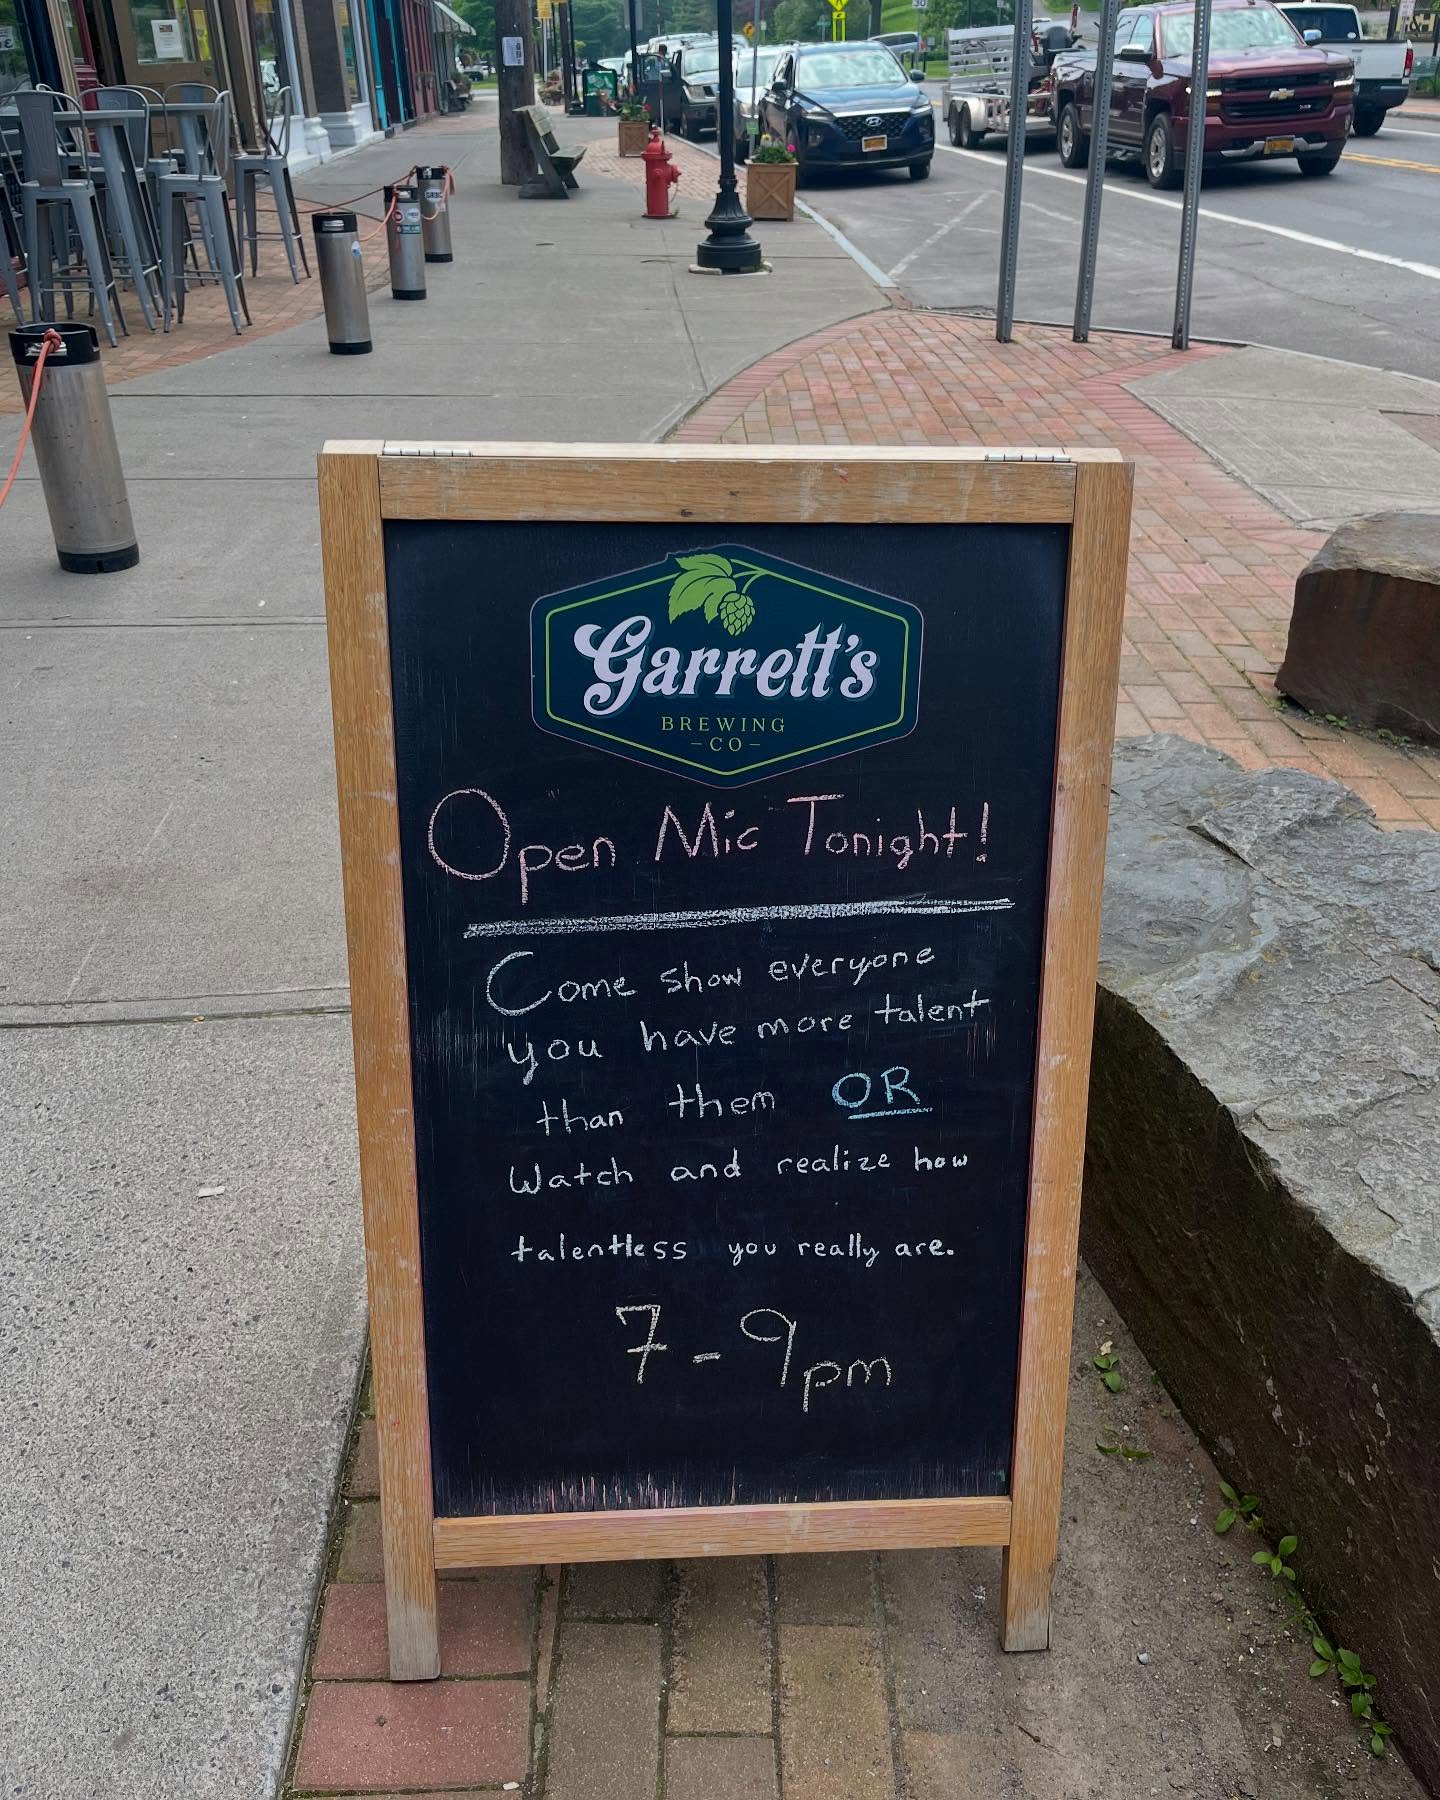 Garrett's
BREWING
-CO-
Open Mic Tonight!
Come show everyone
you have more talent
than them OR
Watch and realize how
talentless you really are.
7-9pm